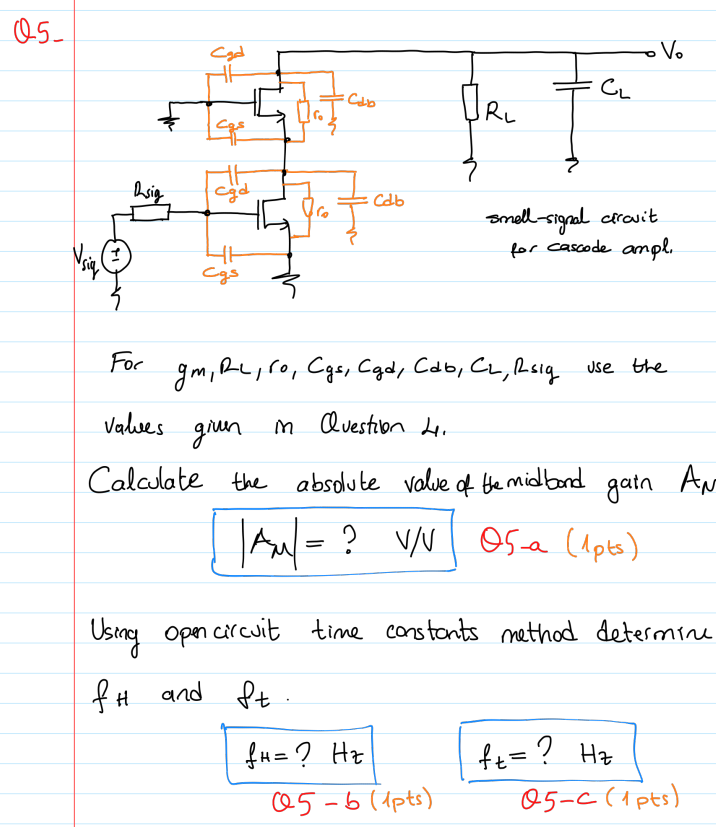 Q5-
Cgd
Vo
CL
ro
Cdb
RL
Cgs
Cgd
Rsig
ro
Cdb
small-signal circuit
for cascode ampl.
Vsig
Cgs
For gm, RL, ro, Cgs, Cgd, Cdb, CL, Rsig use the
values given in Question 4.
Calculate the absolute value of the midband gain AM
|AM| = ? V/V Q5-a (1pts)
Using open circuit time constants method determine
fH and ft.
fH = ? Hz ft = ? Hz
Q5-b (1pts) Q5-c (1pts)